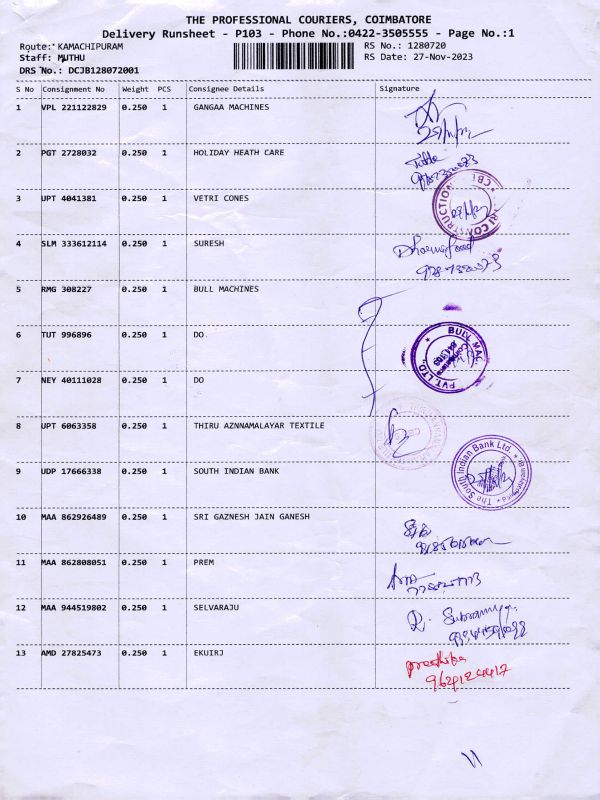 THE PROFESSIONAL COURIERS, COIMBATORE
Delivery Runsheet - P103 - Phone No.:0422-3505555 - Page No.:1
Route: KAMACHIPURAM
RS No.: 1280720
Staff: MUTHU
RS Date: 27-Nov-2023
DRS No.: DCJB128072001
S No Consignment No Weight PCS Consignee Details Signature
1 VPL 221122829 0.250 1 GANGAA MACHINES
2 PGT 2728032 0.250 1 HOLIDAY HEATH CARE
3 UPT 4041381 0.250 1 VETRI CONES
4 SLM 333612114 0.250 1 SURESH
5 RMG 308227 0.250 1 BULL MACHINES
6 TUT 996896 0.250 1 DO.
7 NEY 40111028 0.250 1 DO
8 UPT 6063358 0.250 1 THIRU AZNNAMALAYAR TEXTILE
9 UDP 17666338 0.250 1 SOUTH INDIAN BANK
The South Indian Bank Ltd.
10 MAA 862926489 0.250 1 SRI GAZNESH JAIN GANESH
11 MAA 862808051 0.250 1 PREM
12 MAA 944519802 0.250 1 SELVARAJU
13 AMD 27825473 0.250 1 EKUIRJ
9629124417